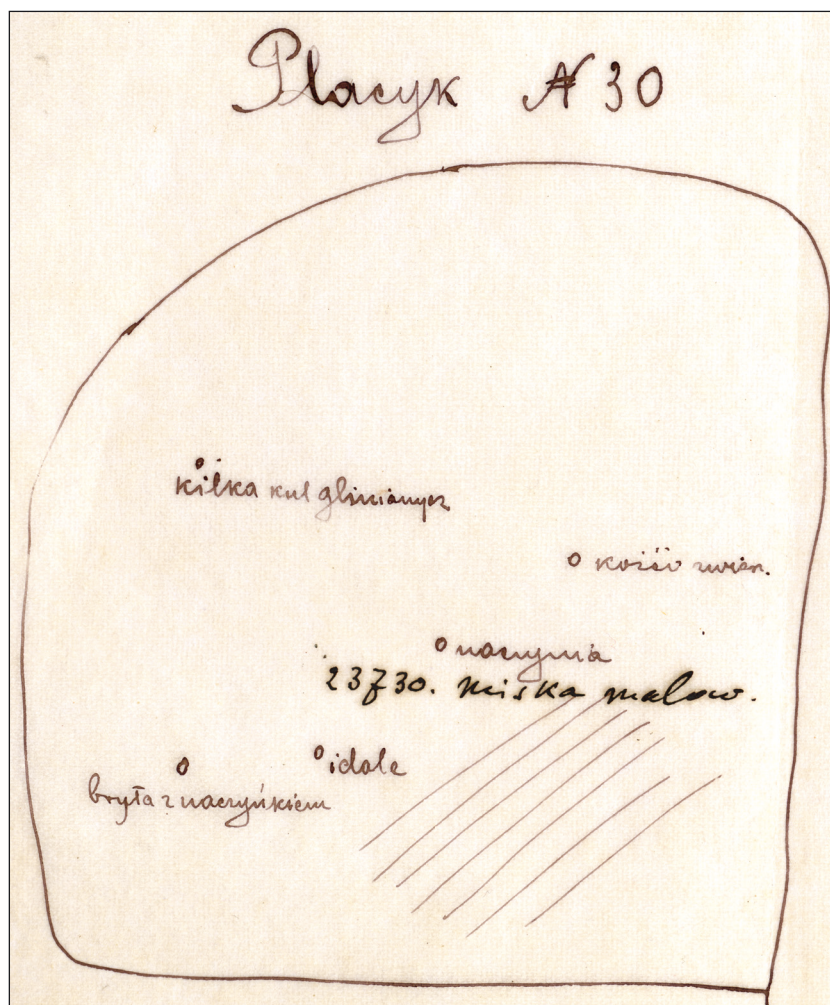 Placyk N 30
kilka kul glinianych
kości zwierz.
naczynia
23730. miska malow.
idole
bryła z naczyńkiem